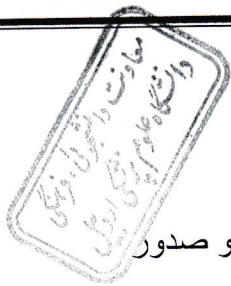 معاونت دانشجویی و فرهنگی
دانشگاه علوم پزشکی اردبیل
و صدور